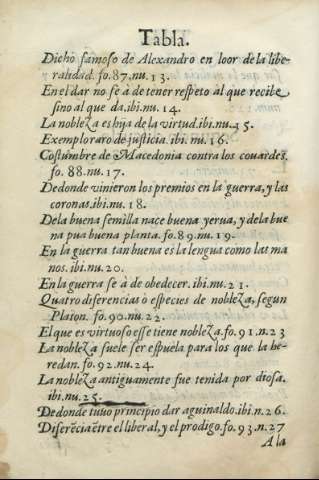 Tabla.
Dicho famoso de Alexandro en loor de la libe-
ralidad. fo. 87. nu. 13.
En el dar no se à de tener respeto al que recibe
sino al que da. ibi. nu. 14.
La nobleza es hija de la virtud. ibi. nu. 15.
Exemplo raro de justicia. ibi. nu. 16.
Costumbre de Macedonia contra los couardes.
fo. 88. nu. 17.
Dedonde vinieron los premios en la guerra, y las
coronas. ibi. nu. 18.
Dela buena semilla nace buena yerua, y dela bue
na pua buena planta. fo. 89. nu. 19.
En la guerra tan buena es la lengua como las ma
nos. ibi. nu. 20.
En la guerra se à de obedecer. ibi. nu. 21.
Quatro diferencias ò especies de nobleza, segun
Platon. fo. 90. nu. 22.
El que es virtuoso esse tiene nobleza. fo. 91. n. 23
La nobleza suele ser espuela para los que la he-
redan. fo. 92. nu. 24.
La nobleza antiguamente fue tenida por diosa.
ibi. nu. 25.
Dedonde tuuo principio dar aguinaldo. ibi. n. 26.
Diferẽcia ẽtre el liberal, y el prodigo. fo. 93. n. 27
A la